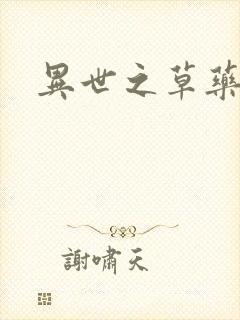 異世之草藥
謝嘯天